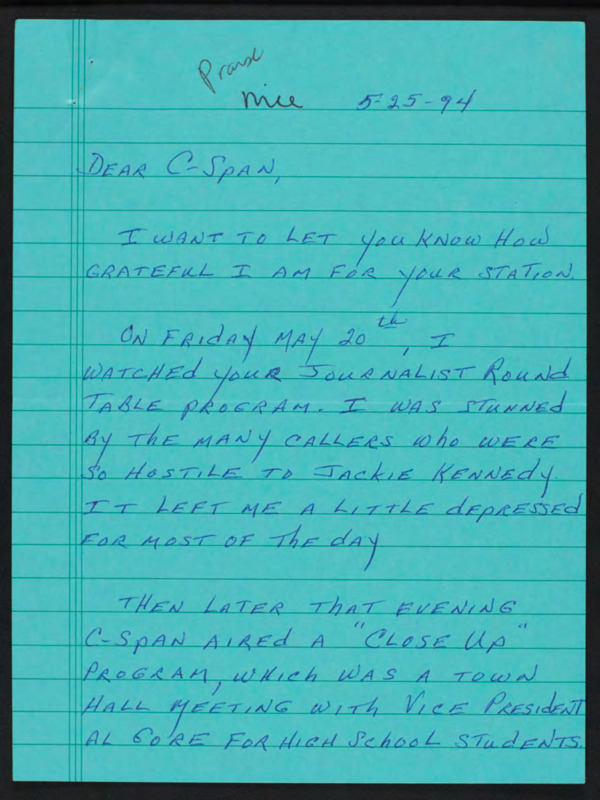 Praise
nice 5-25-94
DEAR C-SPAN,
I WANT TO LET you KNOW HOW
GRATEFUL I AM FOR your STATION.
ON FRIdAy MAY 20th, I
WATCHEd your JOURNALIST ROUNd
TABLE PROGRAM. I WAS STUNNEd
By The MANY CALLERS who WERE
SO HOSTILE TO JACKIE KENNEdy.
IT LEFT ME A LITTLE dEPRESSEd
FOR MOST OF The dAy
THEN LATER ThAT EVENING
C-SPAN AIREd A "CLOSE UP"
PROGRAM, WHICH WAS A TOWN
HALL MEETING WITh VICE PRESIdENT
AL GORE FOR HIGH SchOOL STUdENTS.